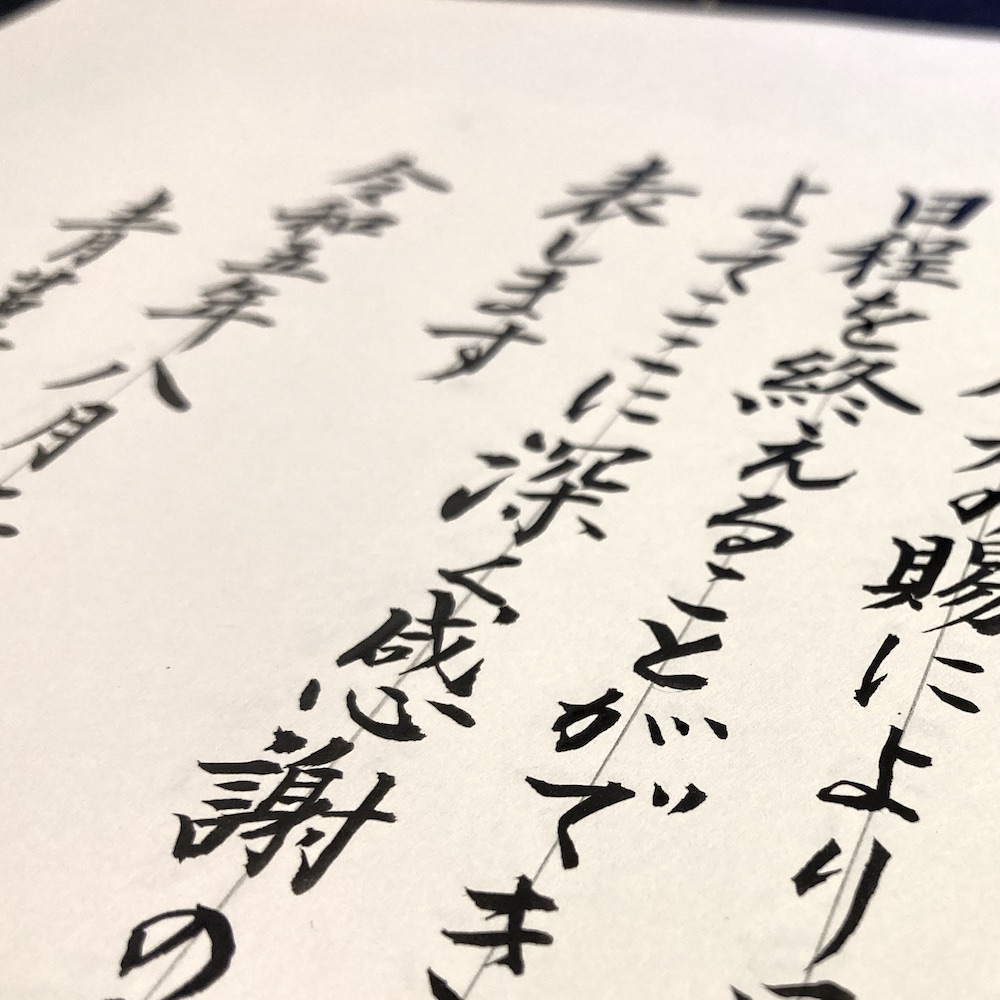 賜により
日程を終えることができ
よってここに深く感謝の
表します
令和五年八月
青